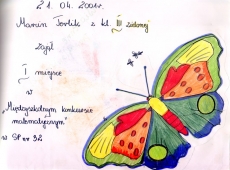 21. 04. 2001r.
Marcin z kl. III zielonej
zajął
I miejsce
w
„Międzyszkolnym konkursie
matematycznym”
w SP nr 32